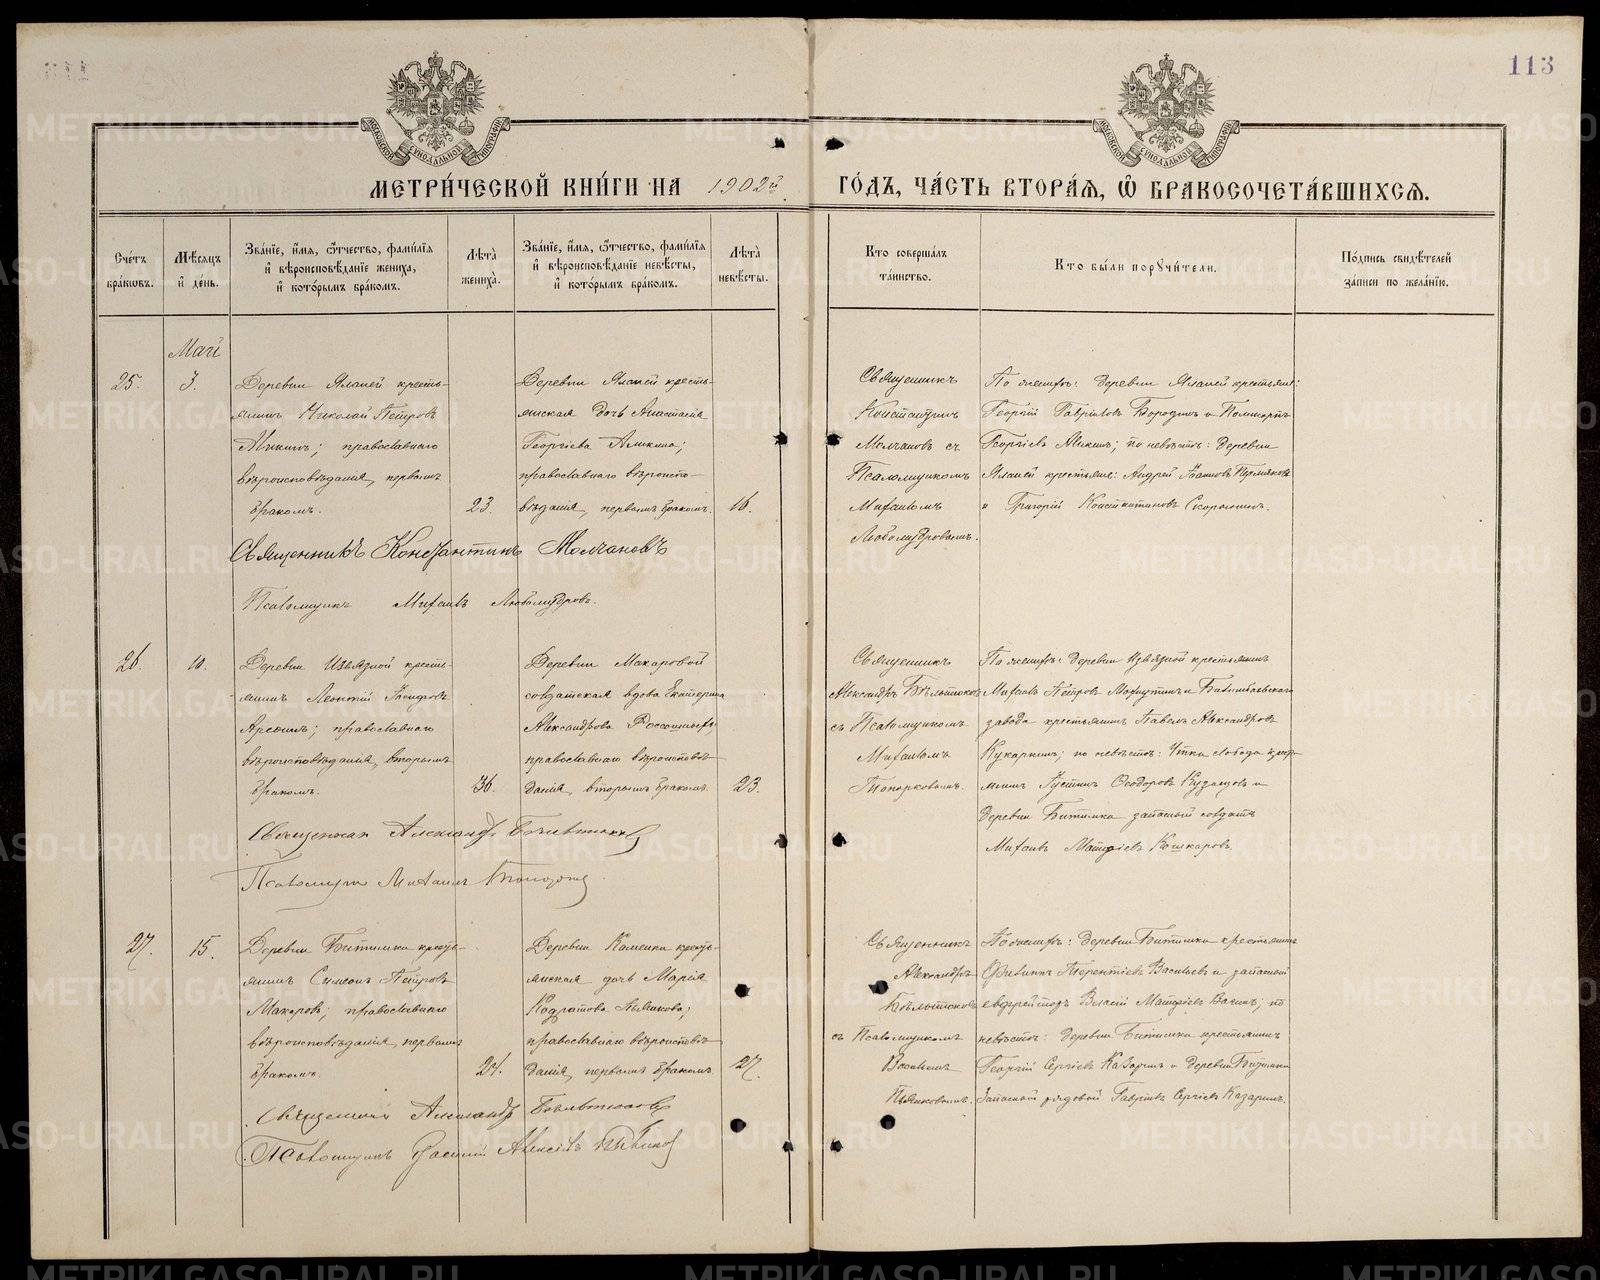 113
МЕТРИ́ЧЕСКОЙ КНИ́ГИ НА 1902й ГО́ДЪ, ЧА́СТЬ ВТОРА́Я, Ѡ҆ БРАКОСОЧЕТА́ВШИХСЯ.
Сче́тъ бра́ковъ.
Мѣ́сяцъ и҆ де́нь.
Зва́нїе, и҆́мя, ѻ҆́тчество, фами́лїя и҆ вѣроисповѣ́данїе жениха̀, и҆ кото́рымъ бра́комъ.
Лѣ́та жениха̀.
Зва́нїе, и҆́мя, ѻ҆́тчество, фами́лїя и҆ вѣроисповѣ́данїе невѣ́сты, и҆ кото́рымъ бра́комъ.
Лѣ́та невѣ́сты.
Кто̀ соверша́лъ та́инство.
Кто̀ бы́ли порꙋчи́тели.
По́дпись свидѣ́телей за́писи по жела́нїю.
Май
25.
3.
Деревни Яланей кресть-
янинъ Николай Петровъ
православнаго
вѣроисповѣданія, первымъ
бракомъ.
23.
Деревни Яланей кресть-
янская дочь Анастасія
Георгіева Аликина;
православнаго вѣроиспо-
вѣданія, первымъ бракомъ.
16.
Священникъ
Константинъ
Молчановъ съ
Псаломщикомъ
Михаиломъ
Любомудровымъ.
По женихѣ: деревни Яланей крестьяне:
Георгій Гавріиловъ Бородинъ и
Георгіевъ Микинъ; по невѣстѣ: деревни
Яланей крестьяне: Андрей Іоанновъ Пермяковъ
и Григорій Константиновъ Скорынинъ.
Священникъ Константинъ Молчановъ
Псаломщикъ Михаилъ Любомудровъ.
26.
10.
Деревни Извѣзной кресть-
янинъ Леонтій
православнаго
вѣроисповѣданія, вторымъ
бракомъ.
36.
Деревни Макаровой
солдатская вдова Екатерина
Александрова
православнаго вѣроисповѣ-
данія, вторымъ бракомъ.
23.
Священникъ
Александръ Бѣльтюковъ
съ Псаломщикомъ
Михаиломъ
Топорковымъ.
По женихѣ: деревни Извѣзной крестьянинъ
Михаилъ Петровъ и Билимбаевскаго
завода крестьянинъ Павелъ Александровъ
Кукаркинъ; по невѣстѣ: Утки слобода кресть-
янинъ Іустинъ Ѳеодоровъ Кузнецовъ и
деревни Битимки запасный солдатъ
Михаилъ Матѳіевъ Кошкаровъ.
Священникъ Александръ Бѣльтюковъ
Псаломщикъ Михаилъ Топорковъ
27.
15.
Деревни Битимки кресть-
янинъ Симеонъ Петровъ
Макаровъ; православнаго
вѣроисповѣданія, первымъ
бракомъ.
24.
Деревни Каменки кресть-
янская дочь Марія
Кодратова Пьянкова;
православнаго вѣроисповѣ-
данія, первымъ бракомъ.
27.
Священникъ
Александръ
Бѣльтюковъ
съ Псаломщикомъ
Василіемъ
Пьянковымъ.
По женихѣ: деревни Битимки крестьянинъ
Филиппъ Терентіевъ Васильевъ и запасный
ефрейторъ Власій Матѳіевъ по
невѣстѣ: деревни Битимки крестьянинъ
Георгій Сергіевъ Казаринъ и деревни Битимки
запасный рядовой Гавріилъ Сергіевъ Казаринъ.
Священникъ Александръ Бѣльтюковъ
Псаломщикъ Василій Алексіевъ Пьянковъ
METRIKI.GASO-URAL.RU